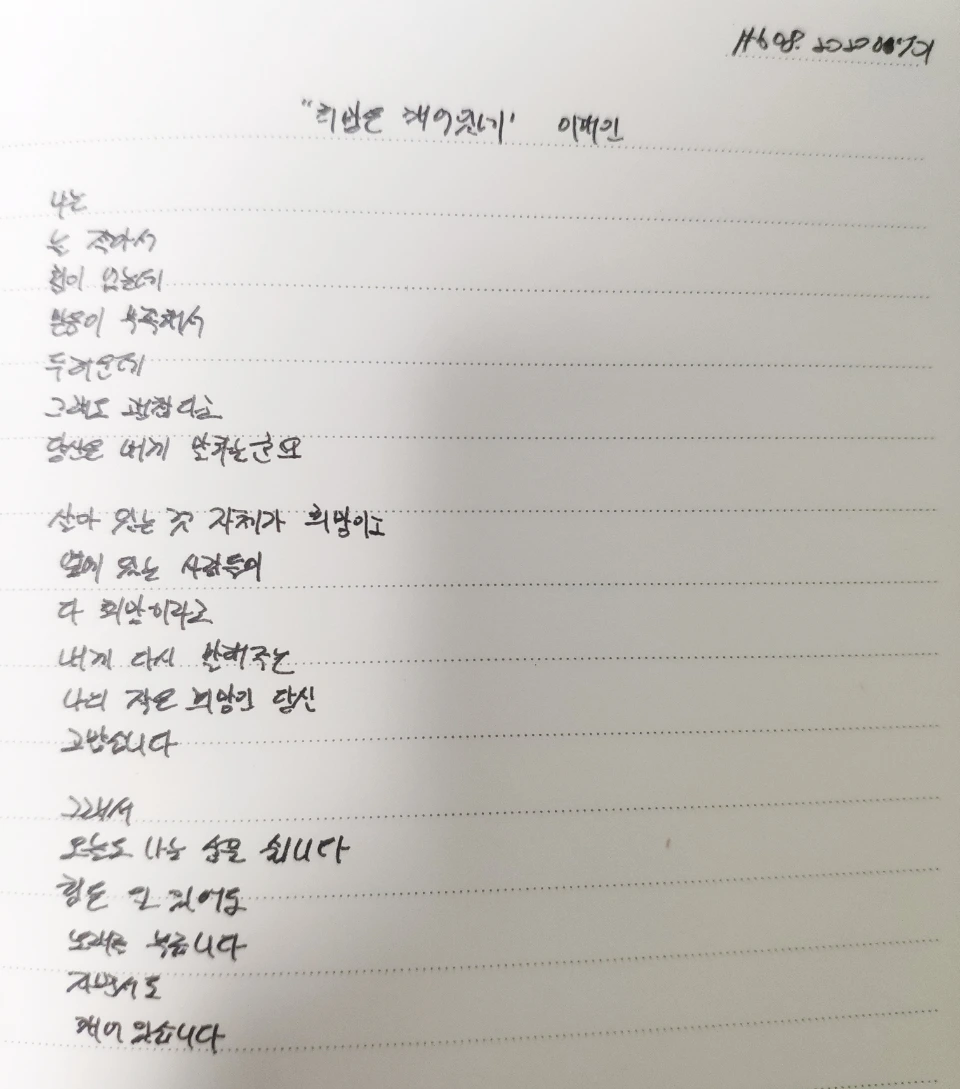 "희망은 깨어있네' 이해인
나는
늘 작아서
힘이 없는데
믿음이 부족해서
두려운데
그래도 괜찮다고
당신은 내게 말하는군요
살아 있는 것 자체가 희망이고
옆에 있는 사람들이
다 희망이라고
내게 다시 말해주는
나의 작은 희망인 당신
고맙습니다
그래서
오늘도 나는 숨을 쉽니다
힘든 일 있어도
노래를 부릅니다
자면서도
깨어 있습니다